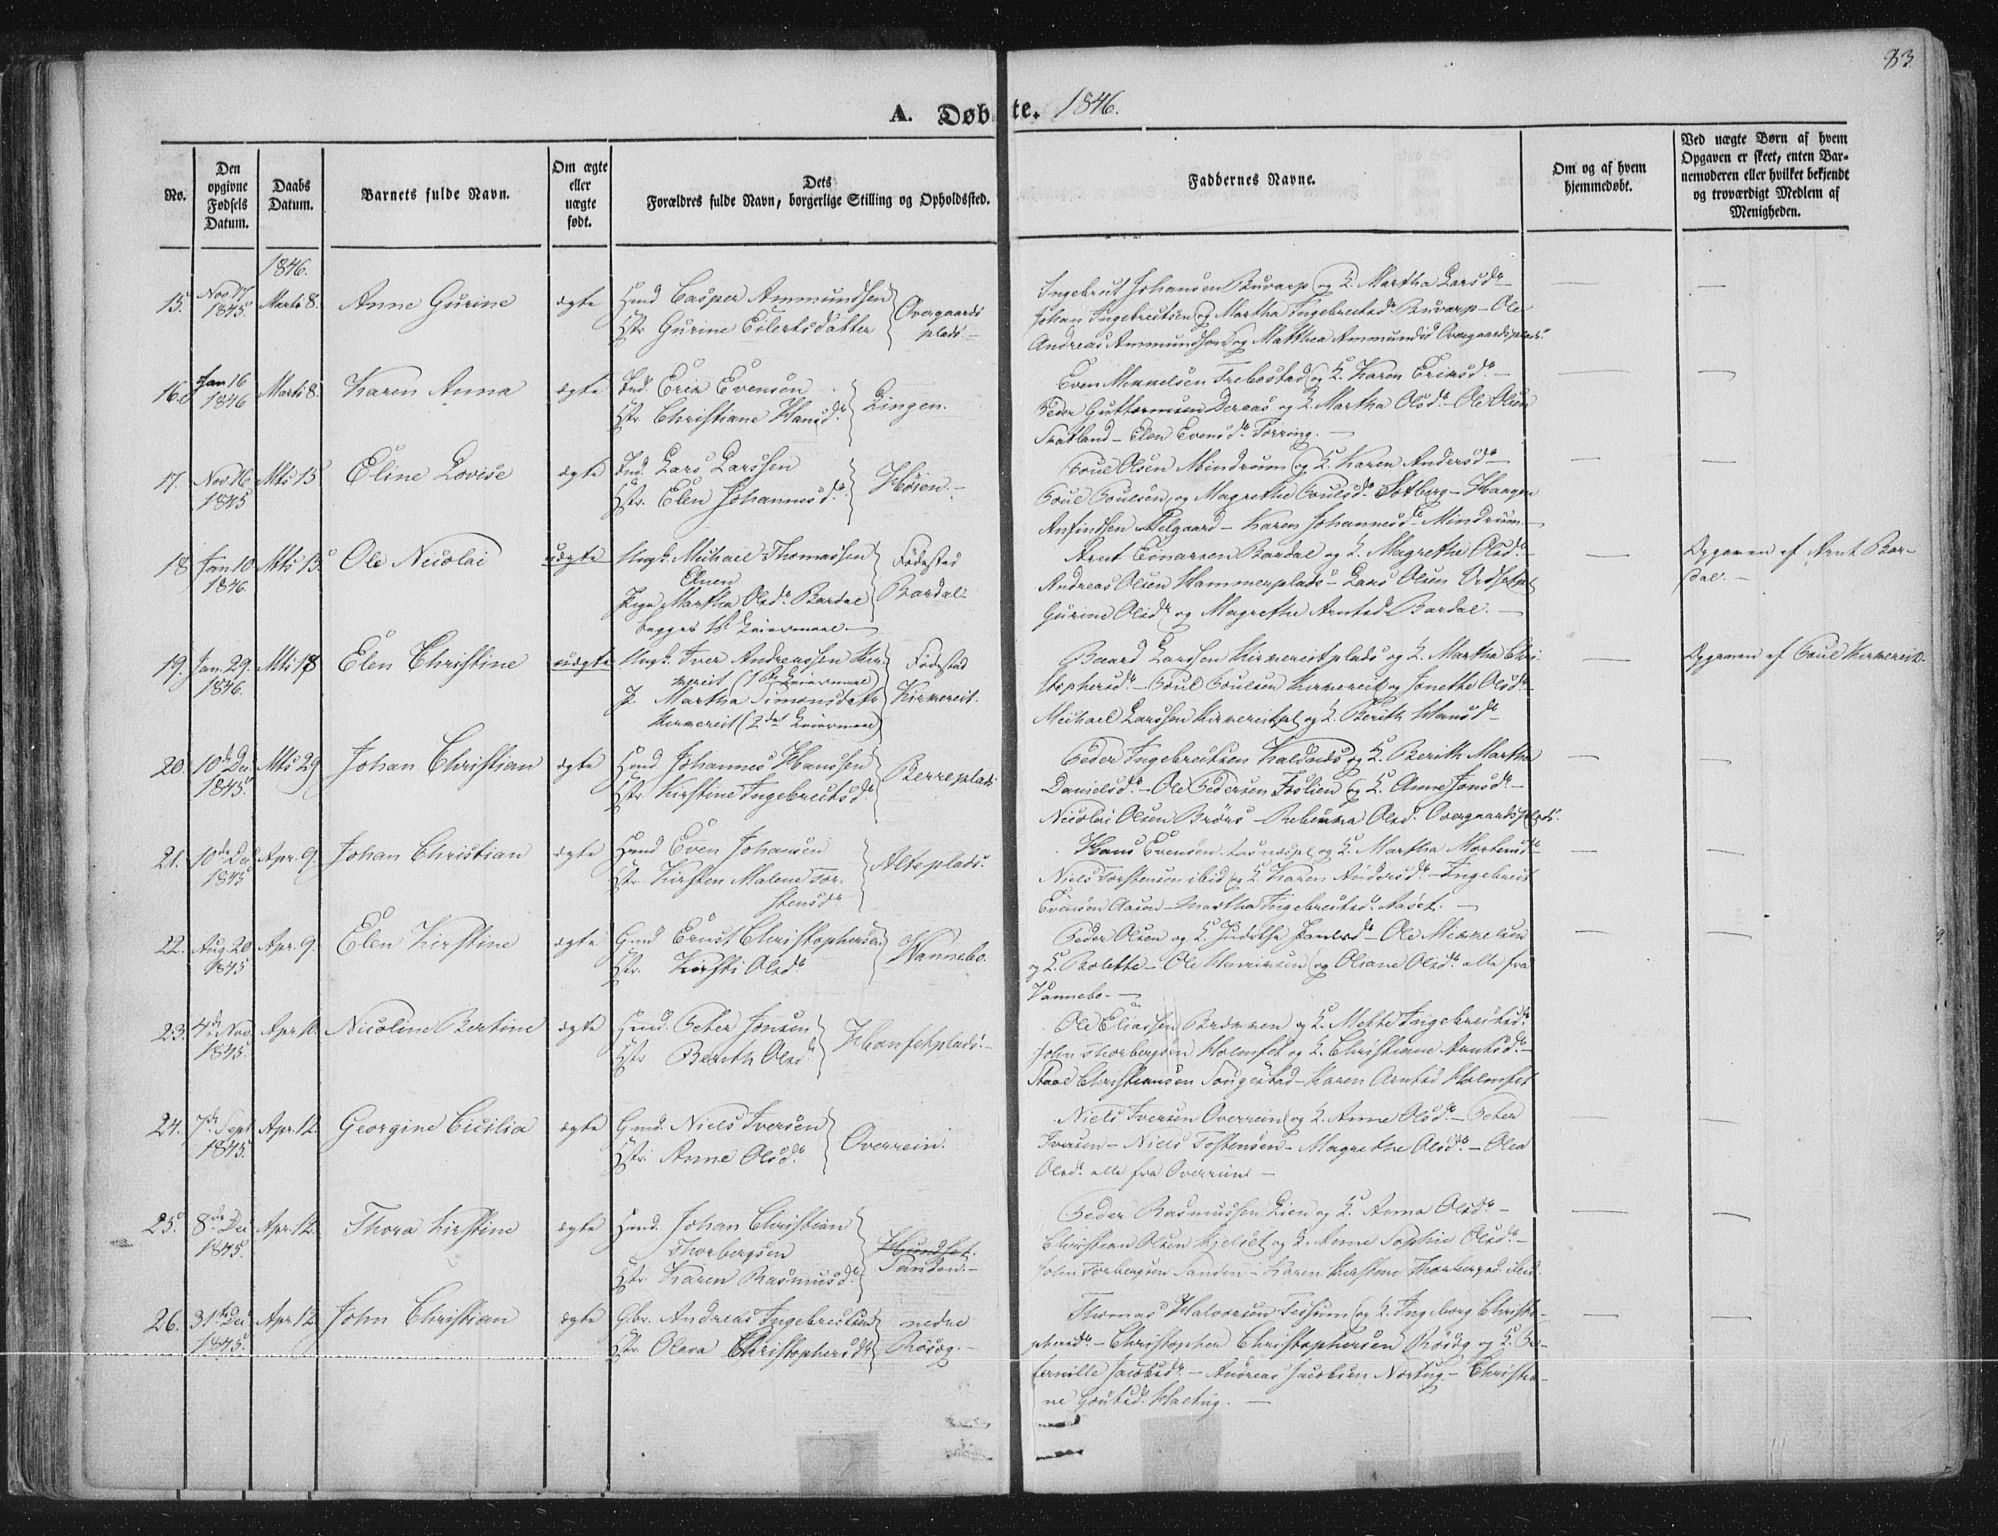 83
A. Døbte. 1846.
No.
Den opgivne Fødsels Datum.
Daabs Datum.
Barnets fulde Navn.
Om ægte eller uægte født.
Dets Forældres fulde Navn, borgerlige Stilling og Opholdssted.
Faddernes Navne.
Om og af hvem hjemmedøbt.
Ved uægte Børn af hvem Opgaven er skeet, enten Barnemoderen eller hvilket bekjendt og troværdigt Medlem af Menigheden.
1846.
15. Nov 17 1845. Marts 8. Anne Gurine ægte Hmd Casper Ammundsen
Hstr Gurine Eilertsdatter Overgaards plads
Ingebrut Johansen Buvarp og K. Martha Larsd.
Johan Ingebretsen og Martha Ingebretsd Buvarp - Ole
Andreas Ammundsen og Mathea Ammundsd Overgaardsplads.
16. Jan 16 1846 Marts 8. Karen Anna ægte Ind. Eric Evensen
Hstr Christiane Hansd. Lingen.
Even Mikkelsen Trebostad og K. Karen Eriksd. -
Peder Guttormsen Deraas og K. Martha Olsd. - Ole Olsen
Tratland - Elen Evensd. Førring. -
17. Nov 16 1845 Mts 15 Eline Lovise ægte Ind. Lars Larssen
Hstr. Elen Johannesd. Høien. -
Poul Olsen Mindrum og K. Karen Andersd -
Poul Poulsen og Magrethe Poulsd. Solberg - Haagen
Anfindsen Melgaard - Karen Johannesd. Mindrum -
18 Jan 10 1846. Mts 15 Ole Nicolai uægte Ungk. Michael Thomassen
Elnen
Pige Martha Olsd. Bardal
begges 1st Leiermaal. -
Fødested Bardal.
Arnt Einarsen Bardal og K. Magrethe Olsd. -
Andreas Olsen Hammerplads - Lars Olsen
Gurine Olsd og Magrethe Arntsd Bardal. -
Opgaven af Arnt Bardal. -
19. Jan. 29. 1846. Mts 18 Elen Christine uægte Ungk. Iver Andreassen Kirknereit (1ste Leiermaal)
P. Martha Simonsdatr
Kirknereit (2det Leiermaal)
Fødested Kirknereit.
Baard Larssen Kirknereitplads og K. Martha Christophersd. - Poul Poulsen Kirknereit og Jonetta Olsd. -
Michael Larssen Kirknereitpl og K. Berith Hansd -
Opgaven af Poul Kirknereit.
20. 10de Dec 1845. Mts 29 Johan Christian ægte Hmd Johannes Hanssen
Hstr Kirstine Ingebretsd. Berreplads
Peder Ingebretsen Kaldaas og K. Berith Martha
Danielsd. - Ole Pedersen Foslien og K. Anne Jonsd. -
Nicolai Olsen Brørs - Rebecca Olsd. Overgaardsplads.
21. 10de Dec 1845 Apr. 9. Johan Christian ægte Hmd Even Johansen
Hstr Kirsten Malene Torstensd. Alteplads.
Hans Evensen og K. Martha Mortensd -
Niels Torstensen ibid og K. Karen Andersd. - Ingebret
Evensen Aasen - Martha Ingebretsd. Aaset. -
22. Aug. 20 1845 Apr. 9. Elen Kirstine ægte Gmd Ernst Christophersen
Hstr. Kirsti Olsd. Wannebo.
Peder Olsen og K. Juditha - Ole Mikkelsen
og K. Bolette - Ole Henriksen og Oliane Olsd. alle fra
Vannebo. -
23. 4de Nov. 1845. Apr. 10. Nicoline Bertine ægte Hmd. Peter Jonsen
Hstr Berith Olsd. Homfetplads. -
Ole Eliassen Brækken og K. Mette Ingebretsd.
John Thorbergsen Holmset og K. Christiane Arntsd. -
Christiansen Songestad - Karen Arntsd Holmset
24. 7de Sept 1845. Apr. 12. Georgine Cicilia ægte Gmd. Niels Iversen
Hstr. Anne Olsd. Overrein.
Niels Iversen Overrein og K. Anne Olsd. - Peter
Iversen - Niels Tostensen - Magrethe Olsd. - Olea
Olsd. alle fra Overrein -
25. 8de Dec 1845. Apr. 12. Thora Kirstine ægte Hmd. Johan Christian
Thorbergsen
Hstr. Karen Rasmusd.
Sanden. -
Peder Rasmussen Lien og K. Anna Olsd. -
Christian Olsen Kjelset og K. Anne Sophie Olsd. -
John Torbergsen Sanden - Karen Kirstine Thorbergsd. ibid.
26. 31te Dec 1845. Apr. 12 John Christian ægte Gbr. Andreas Ingebretsen
Hstr. Olava Christophersd. nedre Røsæg. -
Thomas Halvorsen Tessum og K. Ingeborg Christophersd. - Christopher Christophersen Røsæg og K. Pe-
ternille Jacobsd. - Andreas Jacobsen Nortug - Christia-
ne Haltug. -